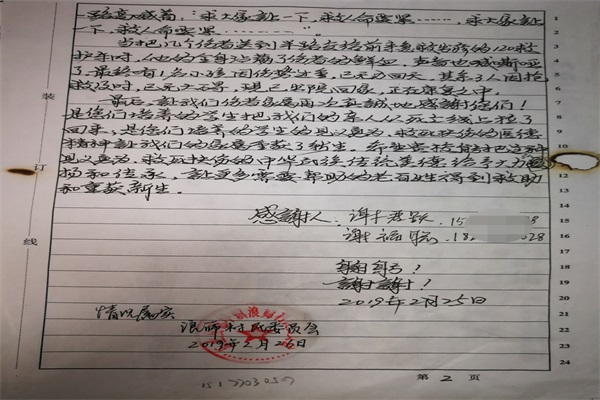 一路高喊着：求大家让一下，救人命要紧……，求大家让
一下，救人命要紧……
当把几个伤者送到半路交接前来急救出诊的120救
护车时，他的全身沾满了伤者的鲜血，声音也喊嘶哑
了。最终有1名小孩因伤势过重，已无力回天，其余3人因抢
救及时，已无大碍，现已出院回家，正在康复之中。
最后，让我们伤者家属再次真诚地感谢您们！
是您们培养的学生把我们的亲人从死亡线上拉了
回来，是您们培养的学生的见义勇为、救死扶伤的医德
精神让我们的家属重获了新生。希望贵校能把这种
见义勇为、救死扶伤的中华民族传统美德给予大力
扬和传承，让更多需要帮助的老百姓得到救助
和重获新生。
感谢人：谢 跃 15 8
谢福聪 18 028
谢谢！
谢谢！
2019年2月25日
情况属实
浪师村民委员会
2019年2月26日
15177030507
第 2 页
装
订
线
1
2
3
4
5
6
7
8
9
10
12
13
14
15
16
17
18
19
20
21
22
23
24